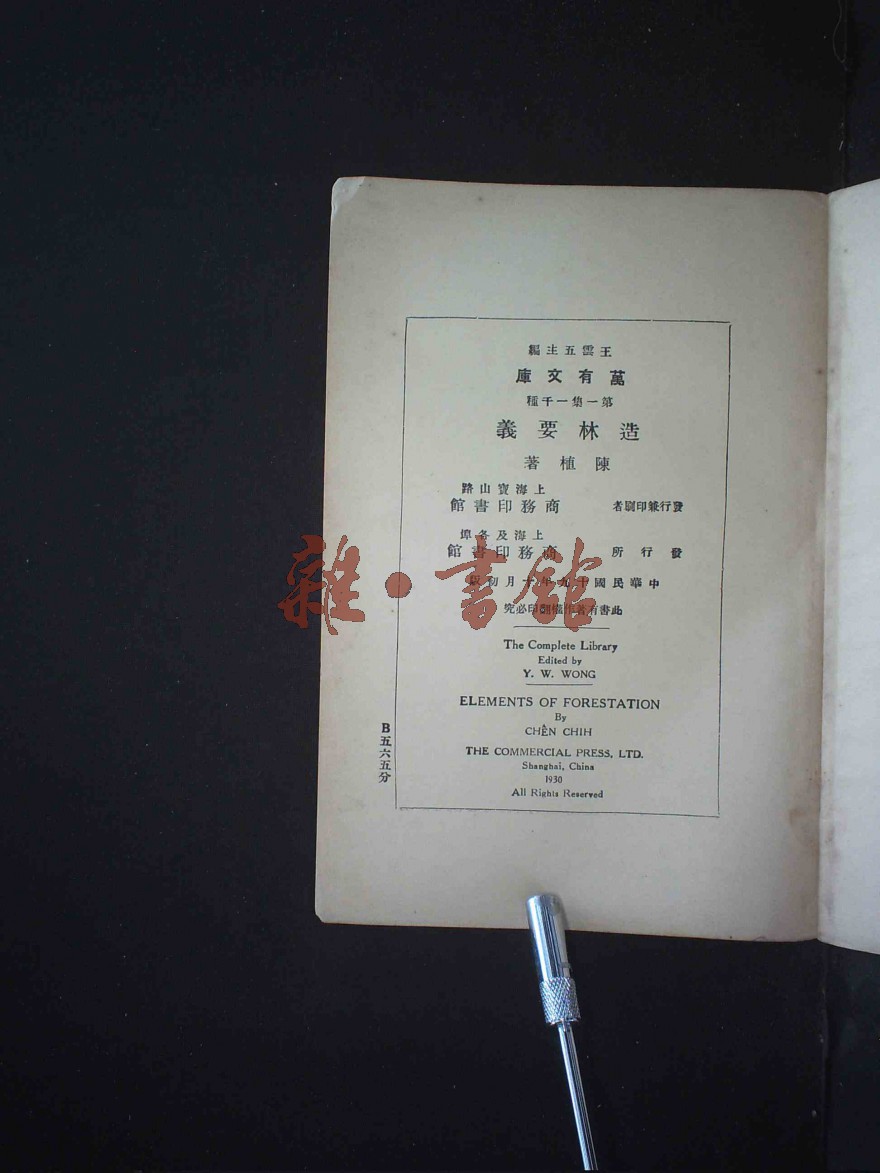 王雲五主編
萬有文庫
第一集一千種
造林要義
陳植著
上海寶山路
發行兼印刷者 商務印書館
上海及各埠
發行所 商務印書館
中華民國十九年十月初版
此書有著作權翻印必究
The Complete Library
Edited by
Y. W. WONG
ELEMENTS OF FORESTATION
By
CHÊN CHIH
THE COMMERCIAL PRESS, LTD.
Shanghai, China
1930
All Rights Reserved
B五六五分
雜·書館